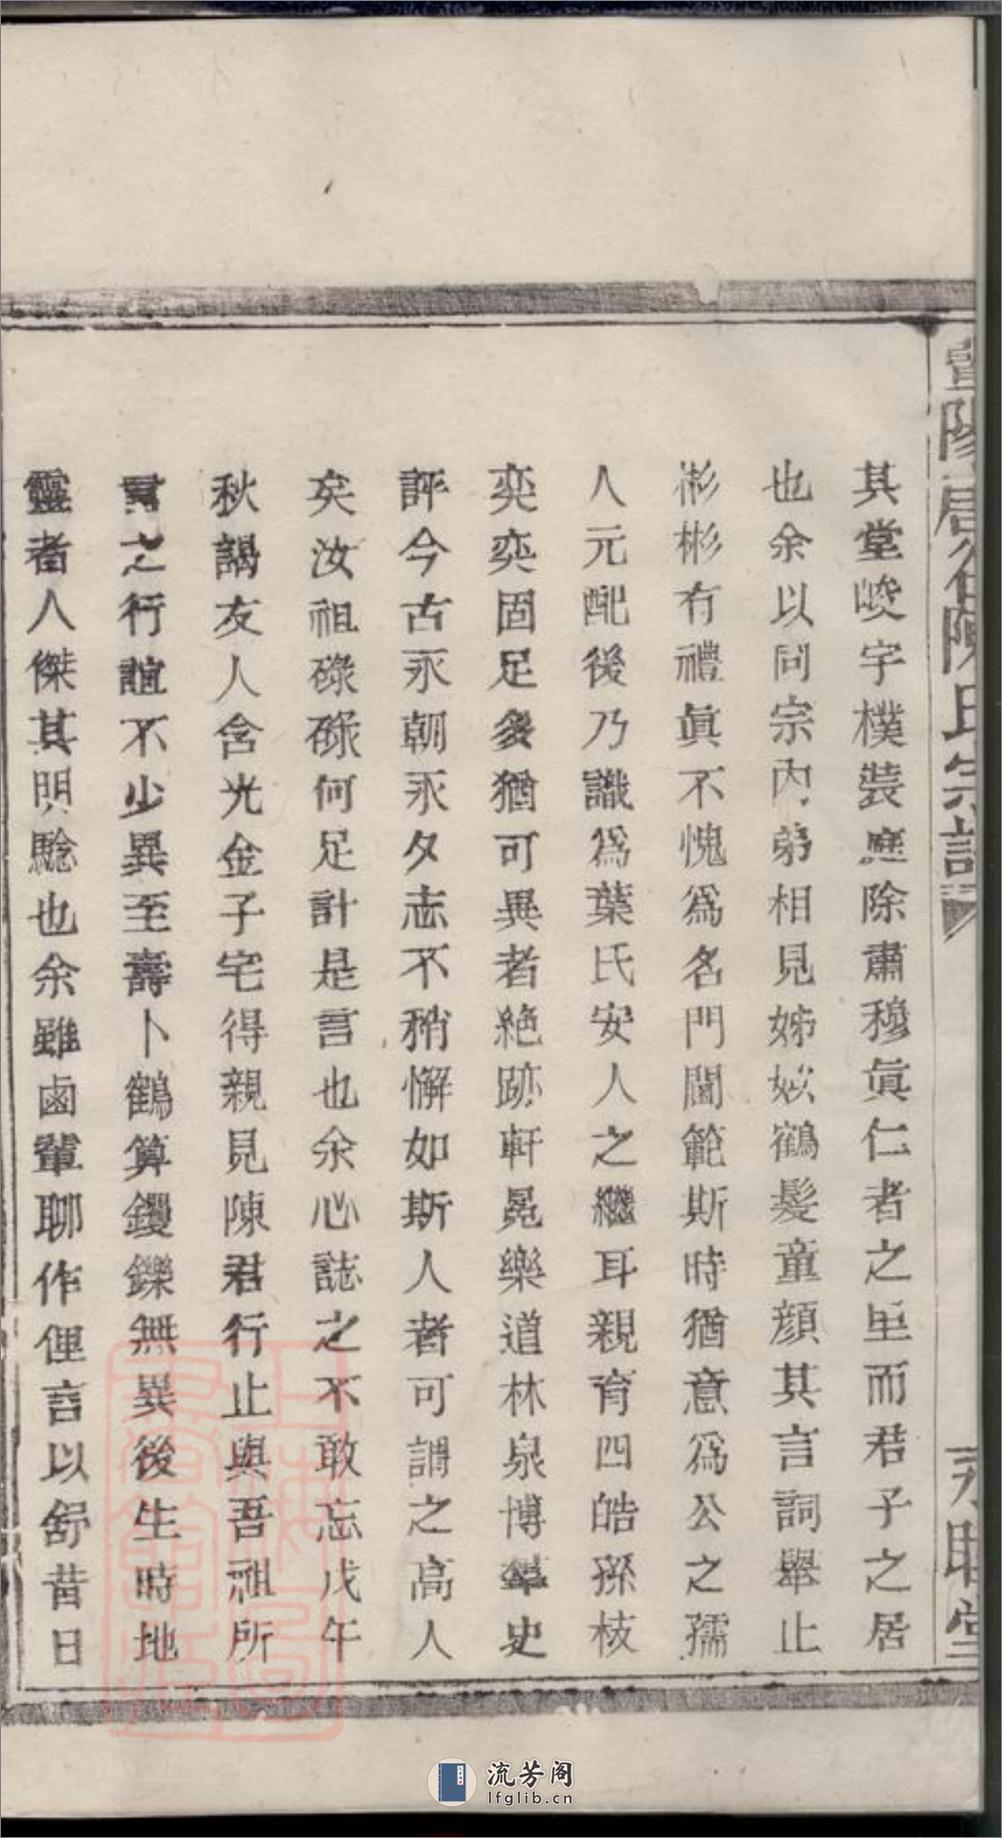 暨陽 居 陳氏宗譜
永 堂
其堂峻宇樸裝庭除肅穆眞仁者之里而君子之居
也余以同宗內弟相見姊妙鶴髮童顔其言詞舉止
彬彬有禮眞不愧爲名門閫範斯時猶意爲公之孺
人元配後乃識爲葉氏安人之繼耳親育四皓孫枝
奕奕固足多猶可異者絶跡軒冕樂道林泉博 史
評今古永朝永夕志不稍懈如斯人者可謂之高人
矣汝祖碌碌何足計是言也余心誌之不敢忘戊午
秋謁友人含光金子宅得親見陳君行止與吾祖所
言之行誼不少異至壽卜鶴算钁鑠無異後生時地
靈者人傑其明騐也余雖鹵輩聊作俚言以舒昔日
流芳阁
lfglib.cn